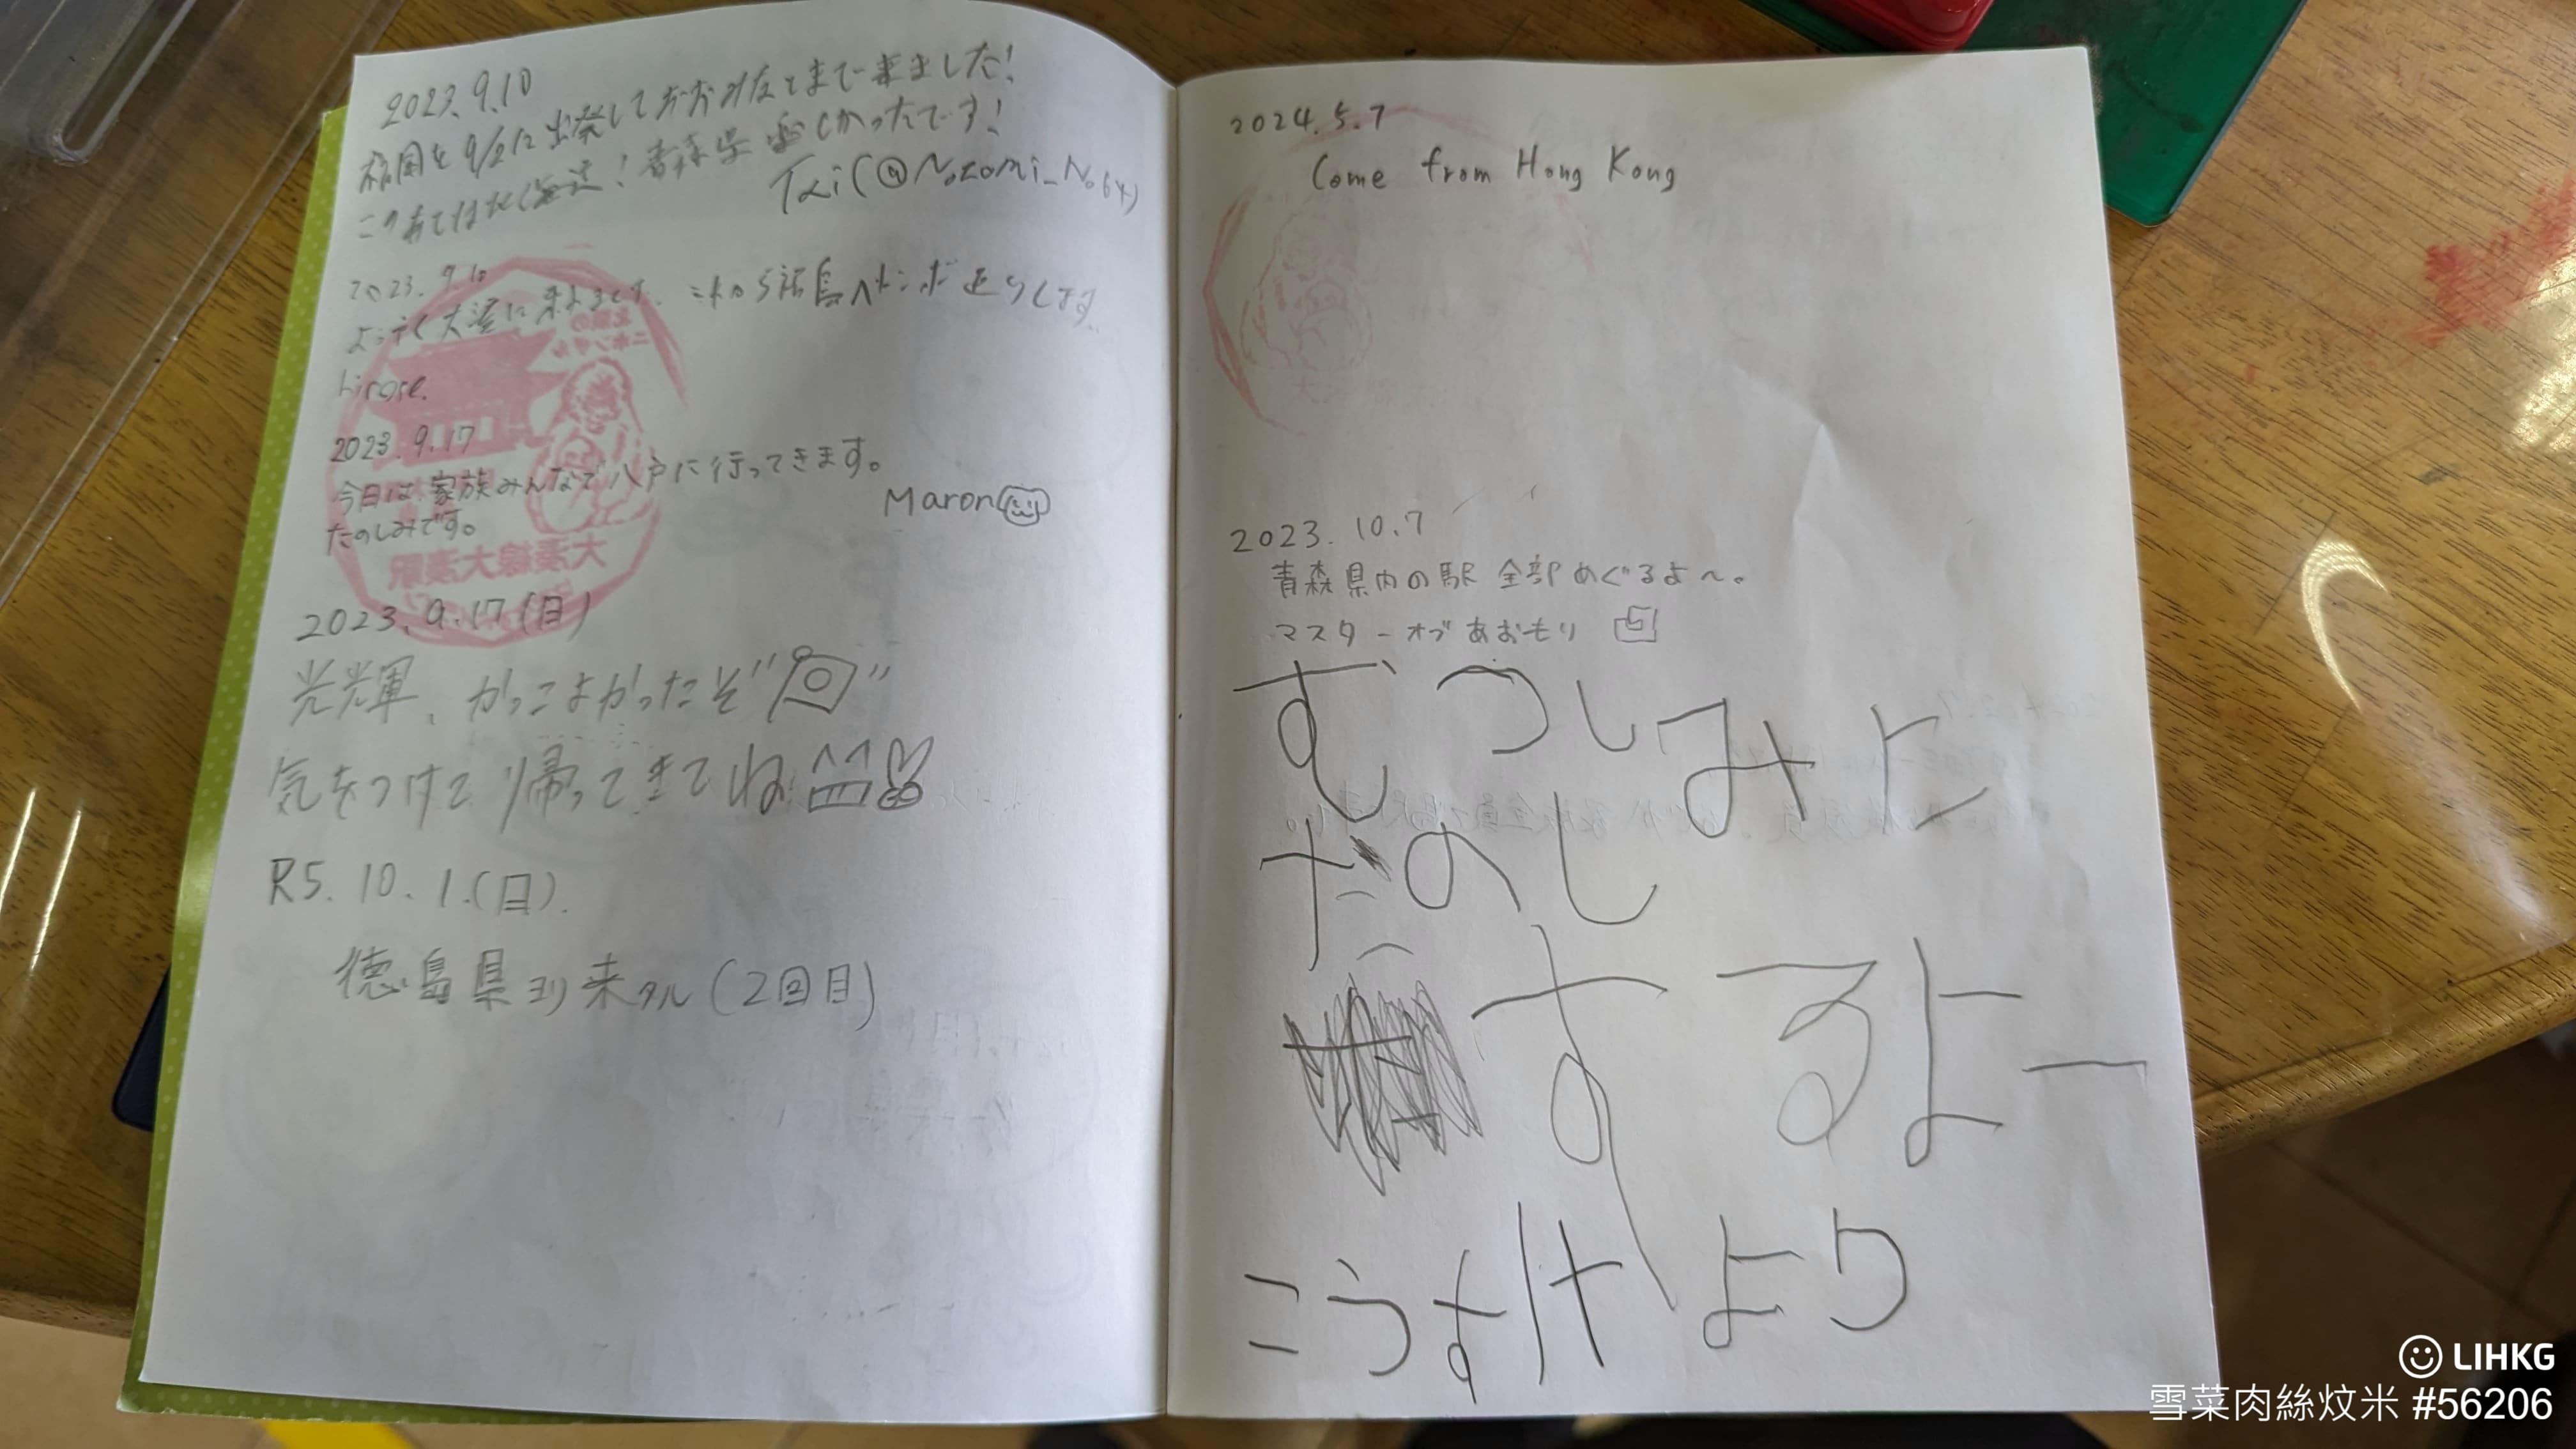 2023.9.10
福岡を9/2に出発しておおみなとまで来ました!
このあとは北海道!青森県楽しかったです!
Tai(@Nozomi_No64)
2023.9.10
ようやく大湊に来れました。これから福島へトンボ返りします。
hirose.
2023.9.17
今日は家族みんなで八戸に行ってきます。
たのしみです。
Maron
大湊線大湊駅
2023.9.17(日)
光輝、かっこよかったぞ
気をつけて帰ってきてね
R5.10.1.(日).
徳島県ヨリ来タル(2回目)
2024.5.7
Come from Hong Kong
2023.10.7
青森県内の駅全部めぐるよ〜。
マスターオブあおもり
むつしみに
だのし
するよー
こうすけより
LIHKG
雪菜肉絲炆米 #56206